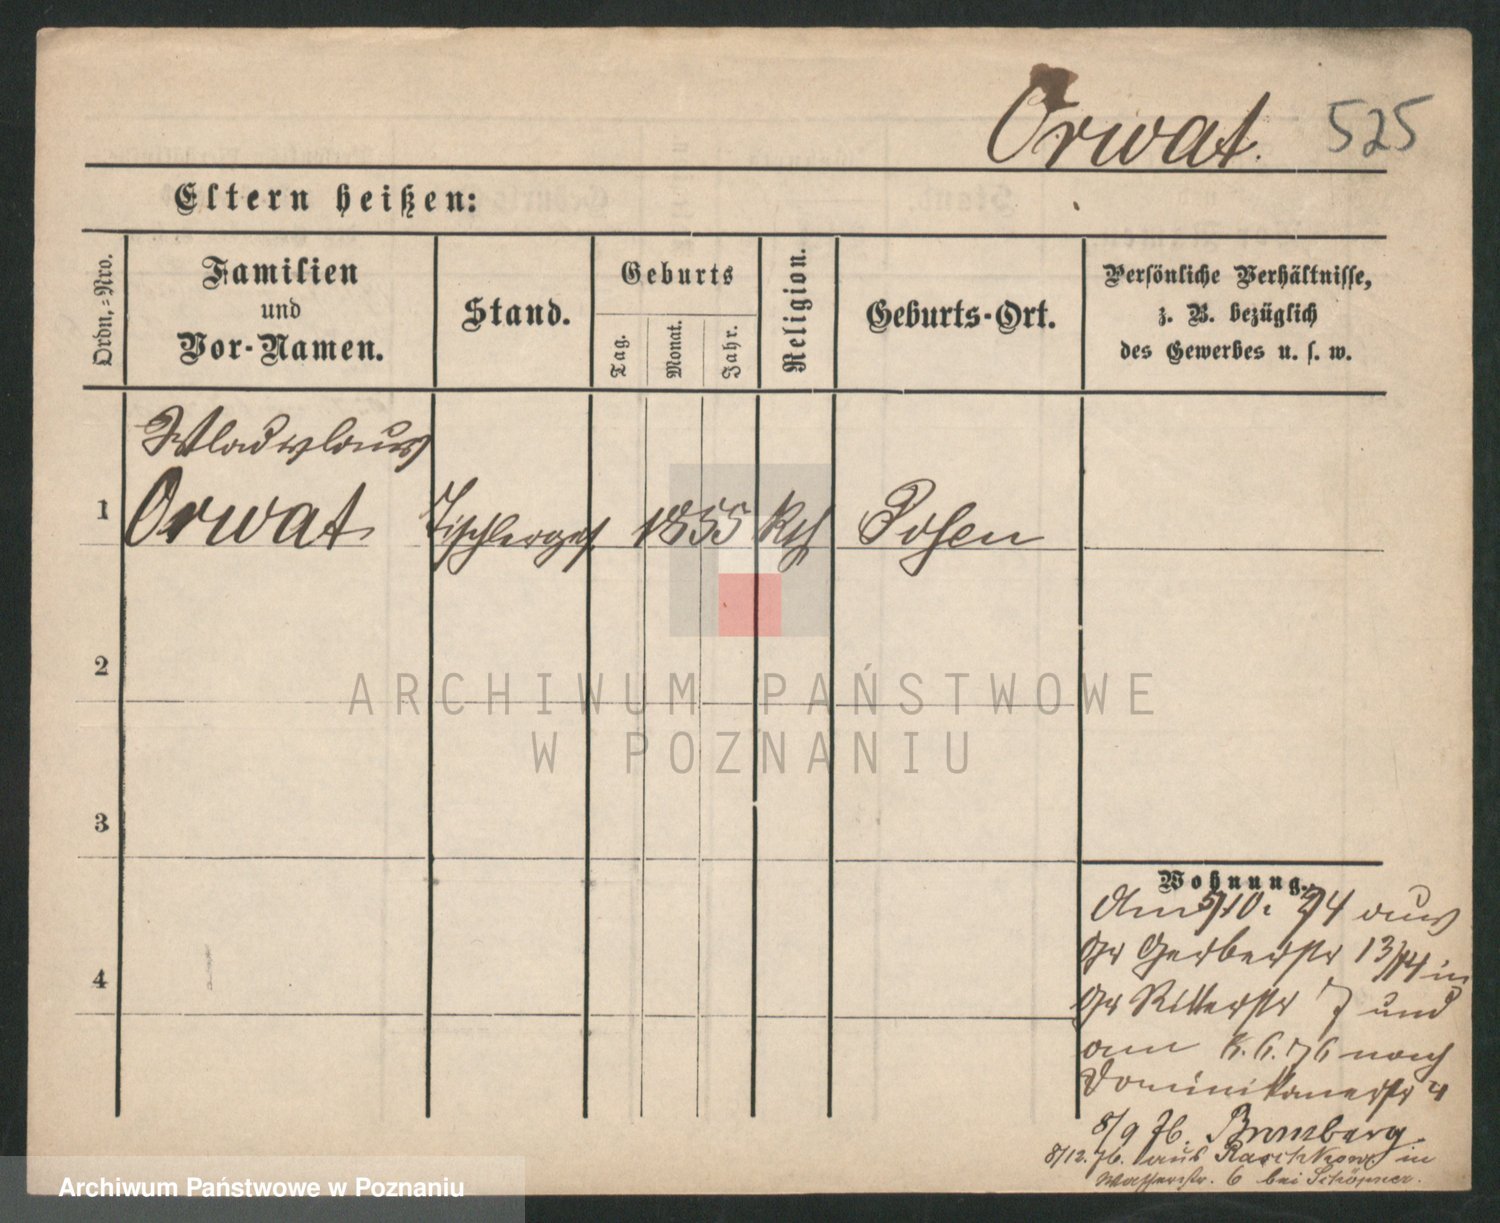 Orwat. 525
Eltern heißen:
Ordn.=Nro.
Familien
und
Vor-Namen.
Stand.
Geburts
Tag.
Monat.
Jahr.
Religion.
Geburts-Ort.
Persönliche Verhältnisse,
z. B. bezüglich
des Gewerbes u. s. w.
Wladislaus
1 Orwat Tischlerges 1855 Kth Posen
2
3
4
Wohnung.
Am 5/10. 74 aus
Gr Gerberstr 13/14 in
Gr Ritterstr 7 und
am 6. 76 nach
Dominikanerstr 4
8/9 76. Bromberg.
8/12. 76. aus Raschkow in
Wasserstr. 6 bei Schöpner.
ARCHIWUM PAŃSTWOWE
W POZNANIU
Archiwum Państwowe w Poznaniu